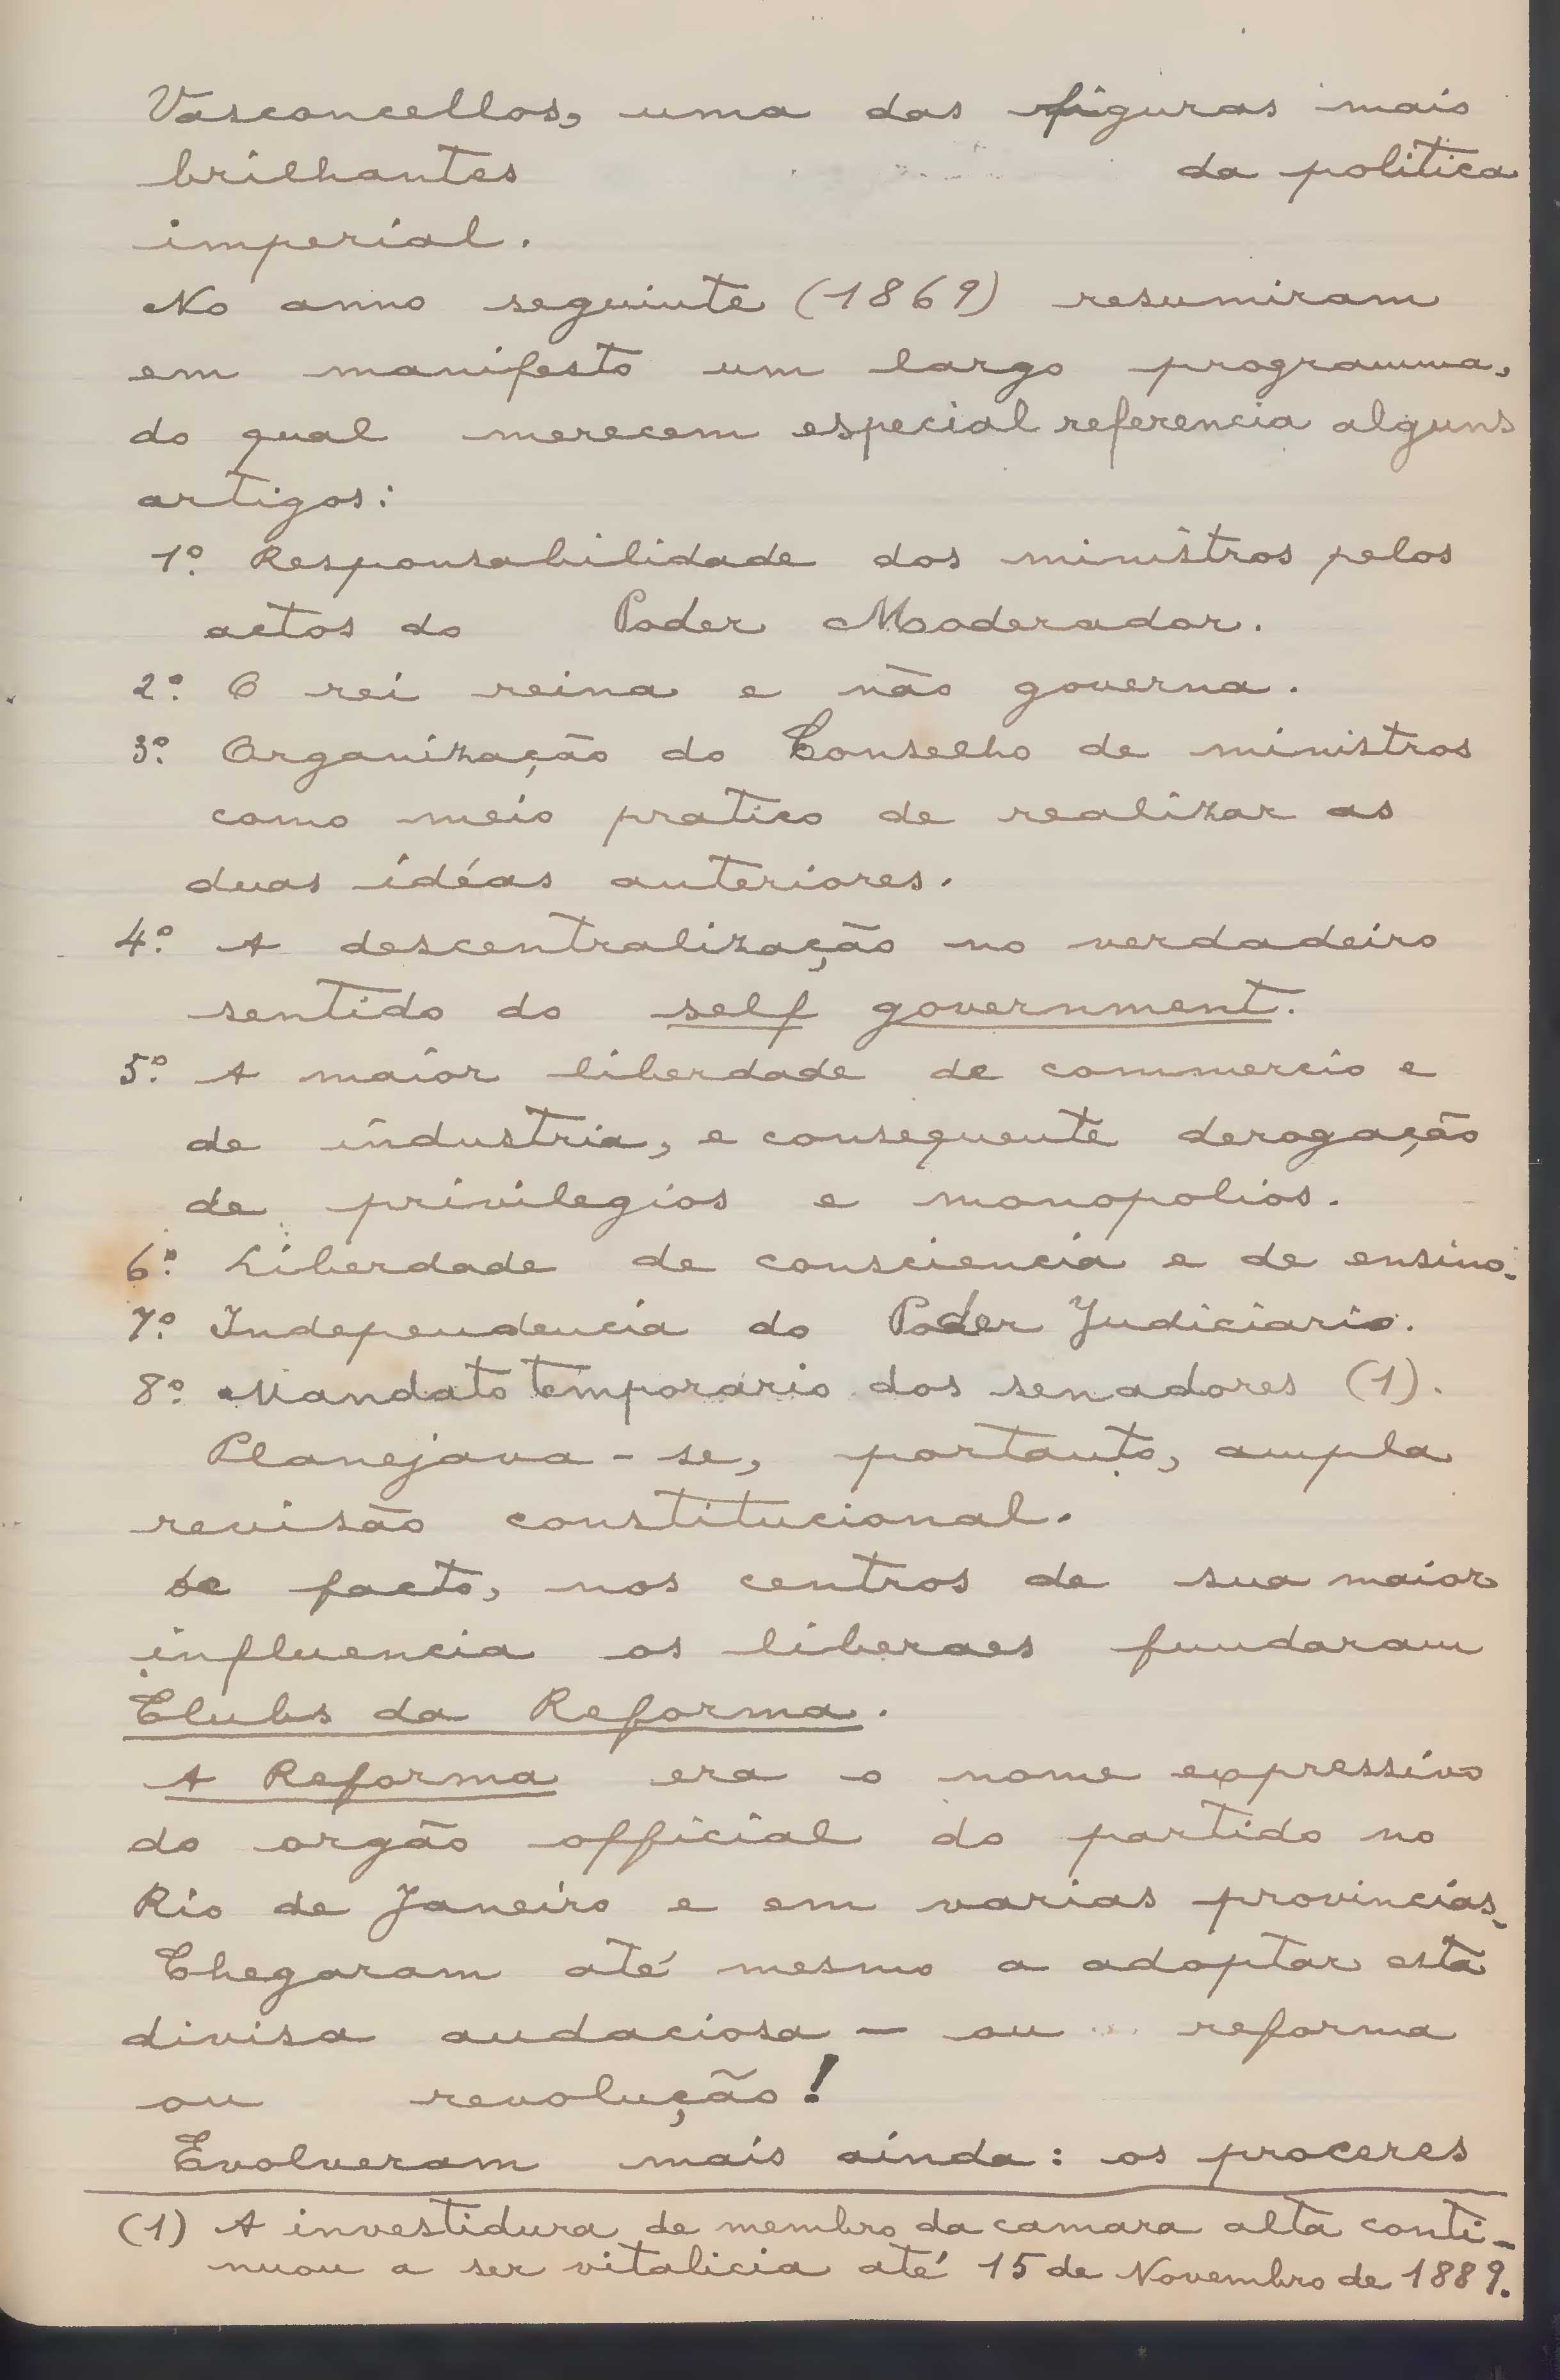 Vasconcellos, uma das figuras mais
brilhantes da politica
imperial.
No anno seguinte (1869) resumiram
em manifesto um largo programma,
do qual merecem especial referencia alguns
artigos:
1º. Responsabilidade dos ministros pelos
actos do Poder Moderador.
2º. O rei reina e não governa.
3º. Organização do Conselho de ministros
como meio pratico de realizar as
duas idéas anteriores.
4º. A descentralização no verdadeiro
sentido do self government.
5º. A maior liberdade de commercio e
de industria, e consequente derogação
de privilegios e monopolios.
6º. Liberdade de consciencia e de ensino.
7º. Independencia do Poder Judiciario.
8º. Mandato temporário dos senadores (1).
Planejava-se, portanto, ampla
revisão constitucional.
De facto, nos centros de sua maior
influencia os liberaes fundaram
Clubs da Reforma.
A Reforma era o nome expressivo
do orgão official do partido no
Rio de Janeiro e em varias provincias.
Chegaram até mesmo a adoptar esta
divisa audaciosa — ou reforma
ou revolução!
Evolveram mais ainda: os proceres
(1) A investidura de membro da camara alta conti-
nuou a ser vitalicia até 15 de Novembro de 1889.